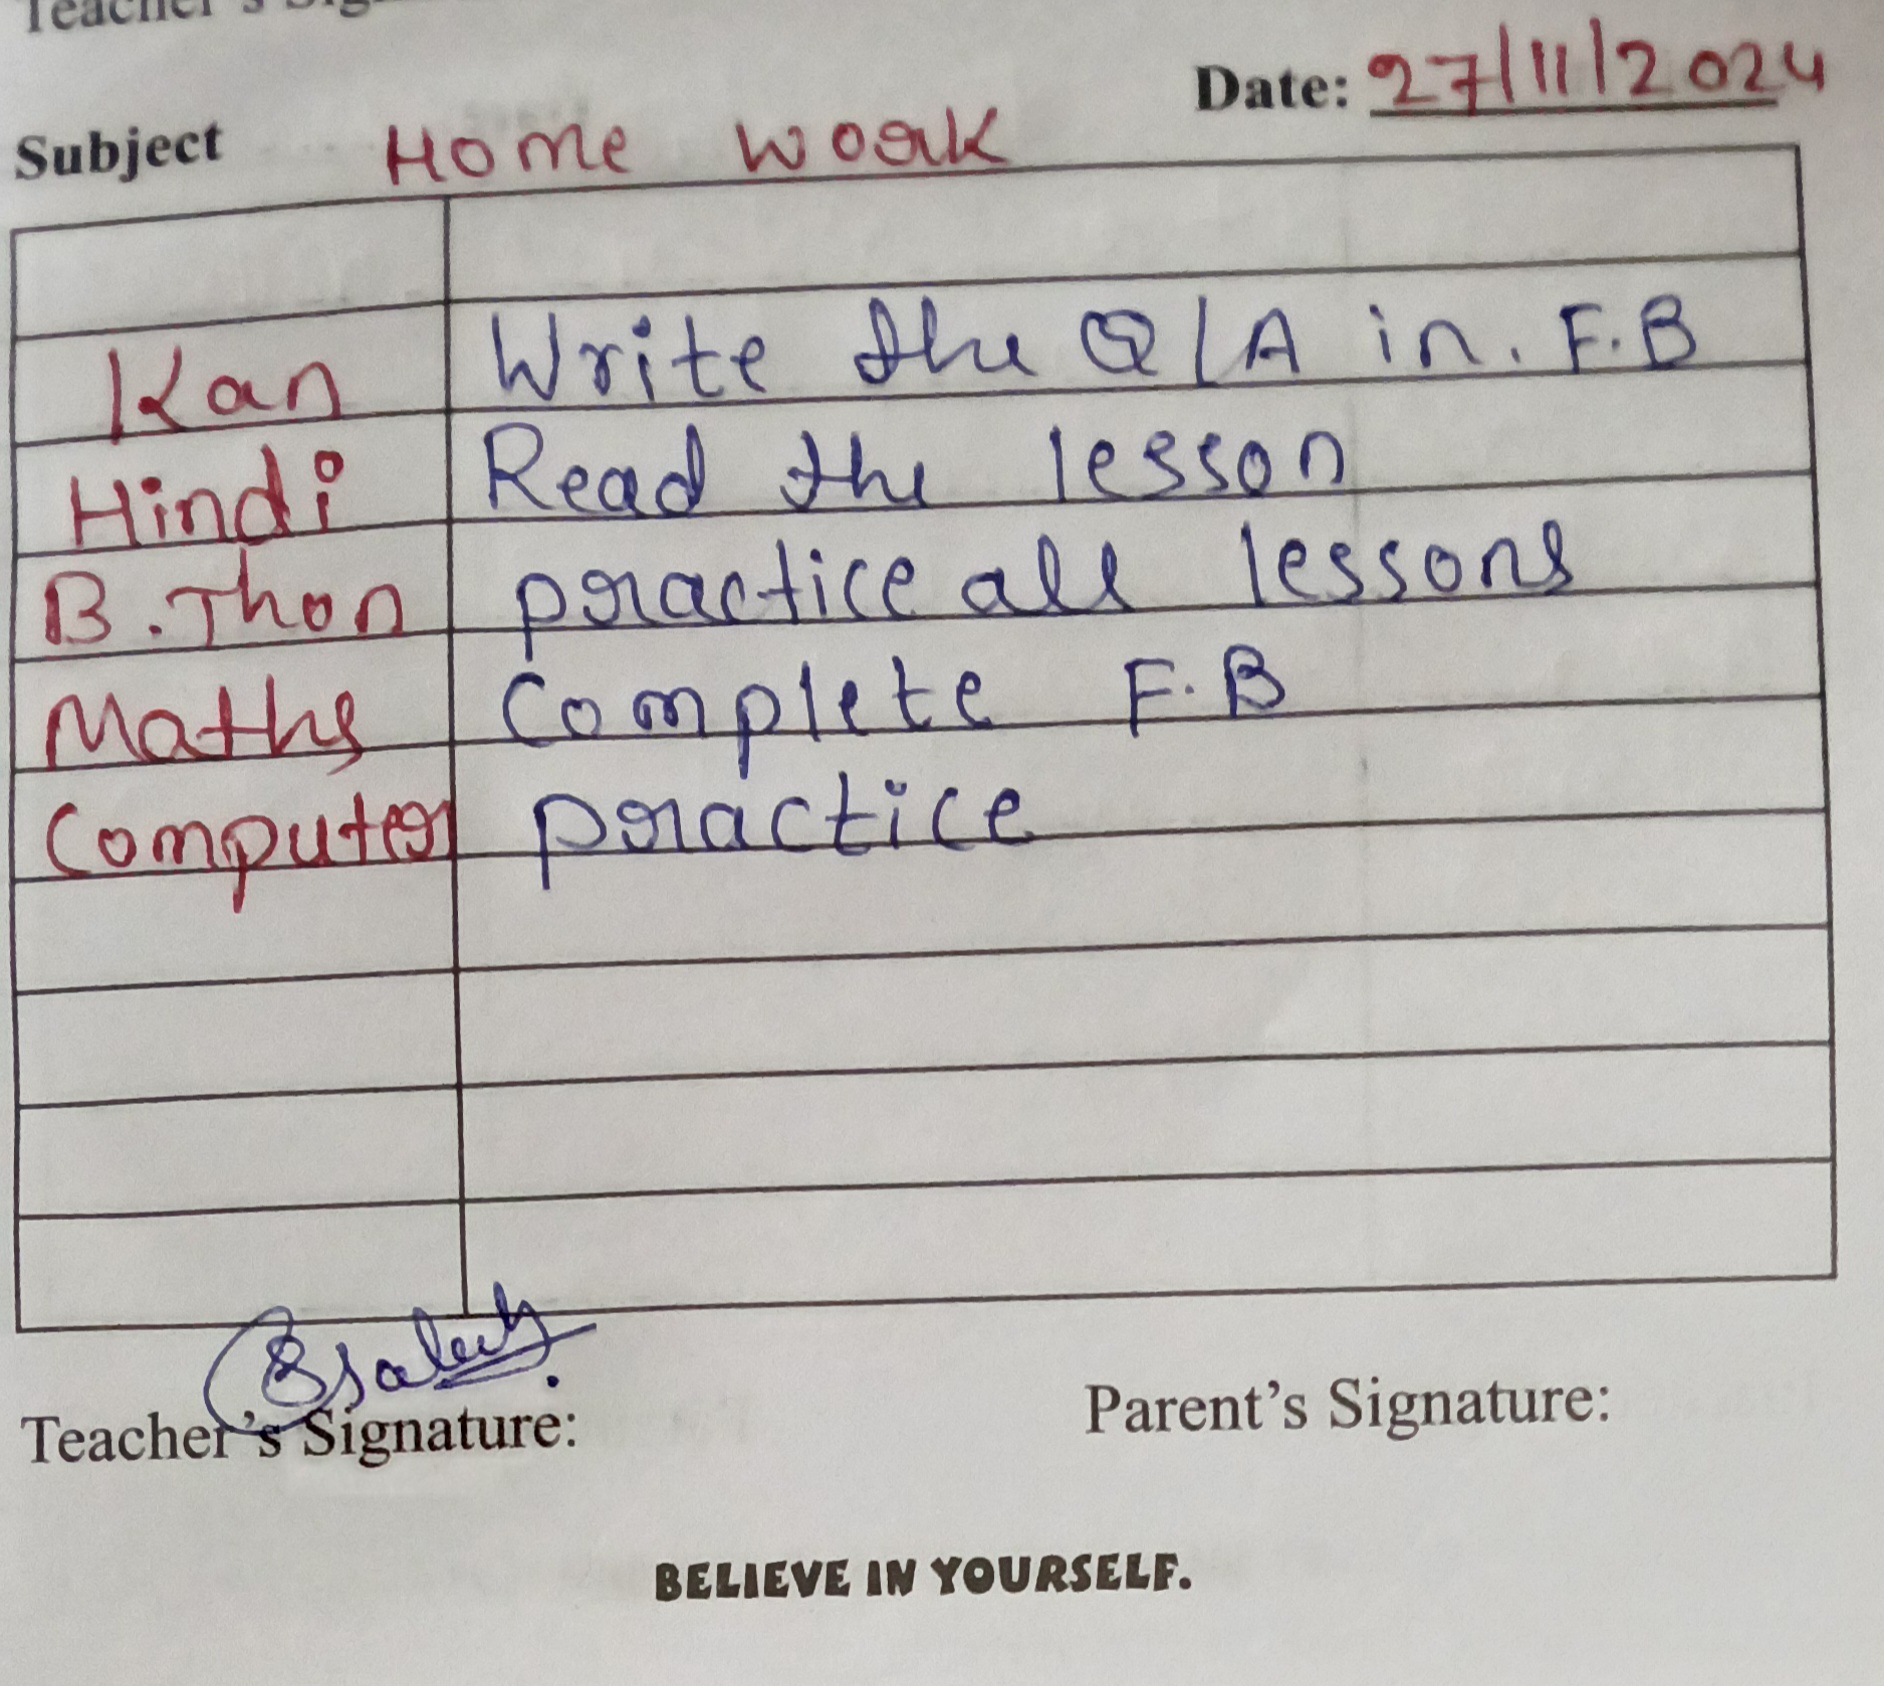 Teacher's Sign
Date: 27/11/2024
Subject Home Work
Kan Write the Q/A in. F.B
Hindi Read the lesson
B.Thon practice all lessons
Maths Complete F.B
Computer practice
Teacher's Signature:
Parent's Signature:
BELIEVE IN YOURSELF.